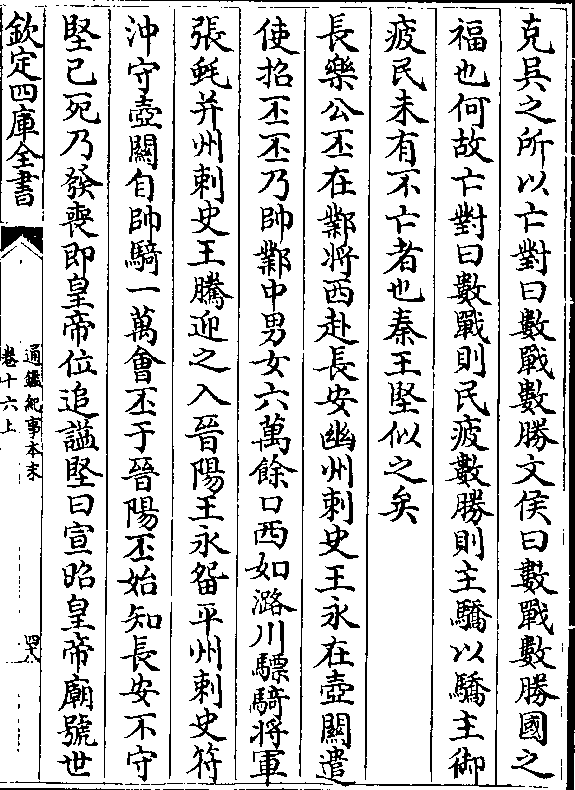 克吳之所以亡對曰數戰數勝文侯曰數戰數勝國之
福也何故亡對曰數戰則民疲數勝則主驕以驕主御
疲民未有不亡者也秦王堅似之矣
長樂公丕在鄴將西赴長安幽州刺史王永在壺關遣
使招丕丕乃帥鄴中男女六萬餘口西如潞川驃騎將軍
張蚝并州刺史王騰迎之入晉陽王永留平州刺史符
沖守壺關自帥騎一萬會丕于晉陽丕始知長安不守
堅已死乃發喪即皇帝位追諡堅曰宣昭皇帝廟號世
欽定四庫全書
通鑑紀事本末
卷十六上
四八